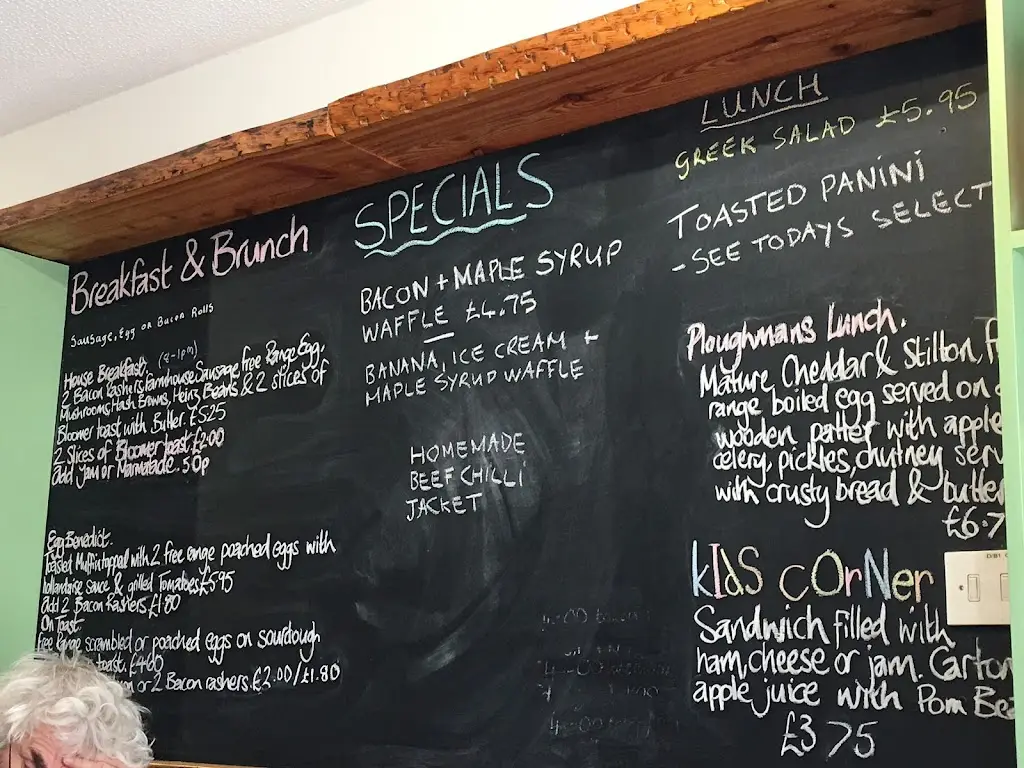 Breakfast & Brunch
Sausage, Egg or Bacon Rolls
House Breakfast, (9-1pm)
2 Bacon Rashers, Farmhouse Sausage, free Range Egg,
Mushrooms, Hash Browns, Heinz Beans & 2 slices of
Bloomer toast with Butter. £5.25
2 Slices of Bloomer toast £2.00
add Jam or Marmalade. 50p
Egg Benedict.
Toasted Muffin topped with 2 free range poached eggs with
hollandaise sauce & grilled Tomatoes £5.95
add 2 Bacon Rashers £1.80
On Toast.
Free Range scrambled or poached eggs on sourdough
toast. £4.00
or 2 Bacon rashers. £2.00/£1.80
SPECIALS
BACON + MAPLE SYRUP
WAFFLE £4.75
BANANA, ICE CREAM +
MAPLE SYRUP WAFFLE
HOMEMADE
BEEF CHILLI
JACKET
LUNCH
GREEK SALAD £5.95
TOASTED PANINI
- SEE TODAYS SELECT
Ploughmans Lunch.
Mature Cheddar & Stilton, f
range boiled egg served on
wooden patter with apple
celery, pickles, chutney serv
with crusty bread & butter
£6.7
kIdS cOrNer
Sandwich filled with
ham, cheese or jam. Carton
apple juice with Pom Be
£3 75